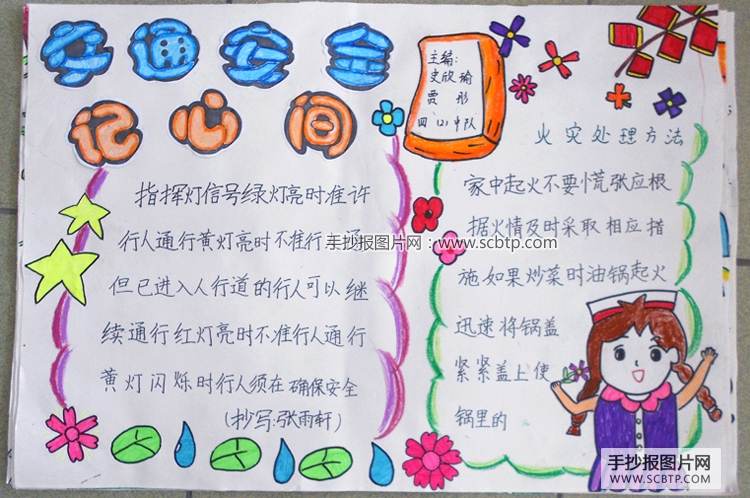 交通安全
记心间
主编:
史欣瑜
贾彤
四(2)中队
指挥灯信号绿灯亮时准许
行人通行黄灯亮时不准行人通
但已进入人行道的行人可以继
续通行红灯亮时不准行人通行
黄灯闪烁时行人须在确保安全
(抄写:张雨轩)
手抄报图片网:www.scbtp.com
火灾处理方法
家中起火不要慌张应根
据火情及时采取相应措
施如果炒菜时油锅起火
迅速将锅盖
紧紧盖上使
锅里的
手抄报图片网
WWW.SCBTP.COM